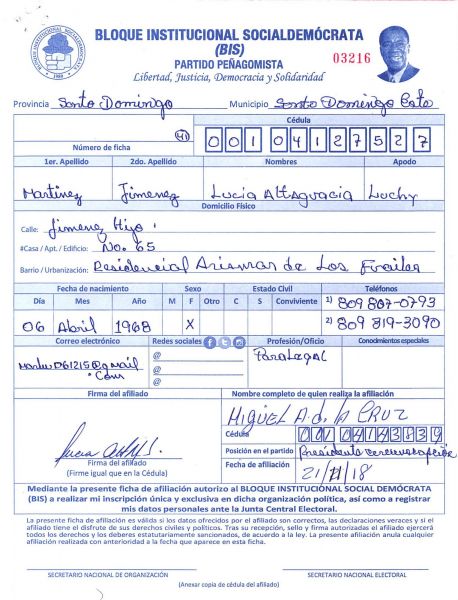 BLOQUE INSTITUCIONAL SOCIALDEMÓCRATA
(BIS)
PARTIDO PEÑAGOMISTA
Libertad, Justicia, Democracia y Solidaridad
03216
Provincia Santo Domingo Municipio Santo Domingo Este
Cédula
Número de ficha 41 0 0 1 0 4 1 2 7 5 2 7
1er. Apellido 2do. Apellido Nombres Apodo
Martinez Jimenez Lucia Altagracia Luchy
Domicilio Físico
Calle: Jimenez Hijo
#Casa / Apt. / Edificio: No. 65
Barrio / Urbanización: Residencial Arismar de Los Frailes
Fecha de nacimiento Sexo Estado Civil Teléfonos
Día Mes Año M F Otro C S Conviviente 1) 809 807-0793
06 Abril 1968 X 2) 809 819-3090
Correo electrónico Redes sociales Profesión/Oficio Conocimientos especiales
061215@gmail Paralegal
.com
@
@
@
Firma del afiliado Nombre completo de quien realiza la afiliación
MIGUEL A. de la CRUZ
Cédula
Posición en el partido Presidente circunscripción
Firma del afiliado
(Firme igual que en la Cédula)
Fecha de afiliación 21/11/18
Mediante la presente ficha de afiliación autorizo al BLOQUE INSTITUCIONAL SOCIAL DEMÓCRATA
(BIS) a realizar mi inscripción única y exclusiva en dicha organización política, así como a registrar
mis datos personales ante la Junta Central Electoral.
La presente ficha de afiliación es válida si los datos ofrecidos por el afiliado son correctos, las declaraciones veraces y si el
afiliado tiene el disfrute de sus derechos civiles y políticos. Tras su recepción, sello y firma autorizada el afiliado ejercerá
todos los derechos y los deberes estatutariamente sancionados, de acuerdo a la ley. La presente afiliación anula cualquier
afiliación realizada con anterioridad a la fecha que aparece en esta ficha.
SECRETARIO NACIONAL DE ORGANIZACIÓN SECRETARIO NACIONAL ELECTORAL
(Anexar copia de cédula del afiliado)